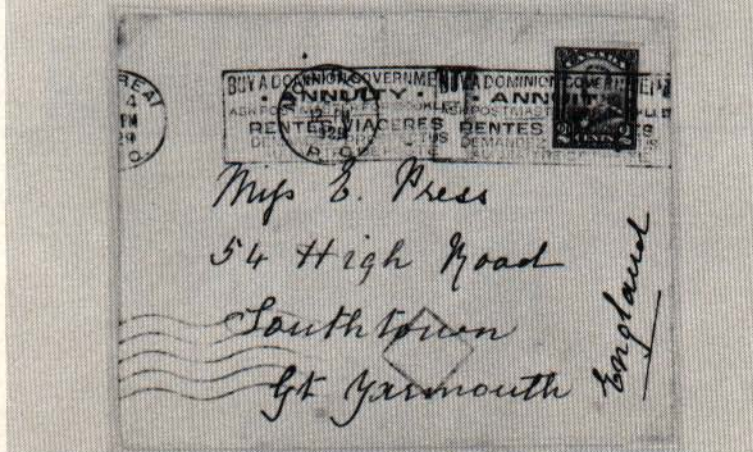 REAL
4
PM
29
O.
BUY A DOMINION GOVERNMENT
ANNUITY
RENTES VIAGERES
12 PM
P. Q.
BUY A DOMINION GOVERNMENT
ANNUITY
RENTES
DEMANDEZ
Miss E. Press
54 High Road
Southtown
Gt Yarmouth
England